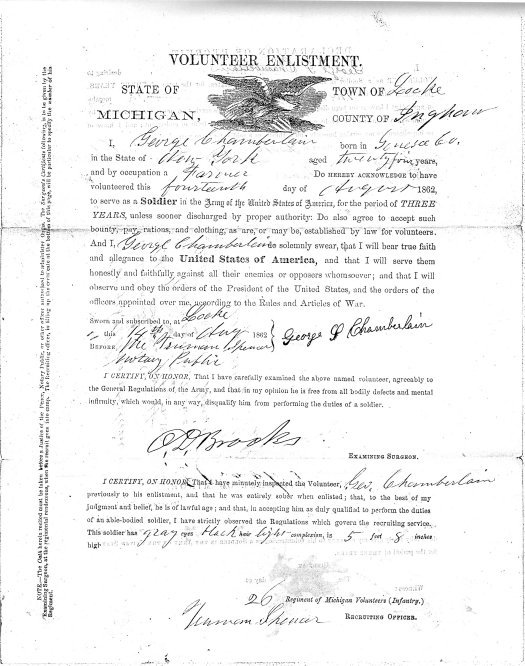 VOLUNTEER ENLISTMENT.
STATE OF
MICHIGAN,
TOWN OF Locke
COUNTY OF Ingham
I, George Chamberlain born in Genesee Co.
in the State of New York aged twenty four years,
and by occupation a Farmer Do HEREBY ACKNOWLEDGE to have
volunteered this fourteenth day of August 1862,
to serve as a Soldier in the Army of the United States of America, for the period of THREE
YEARS, unless sooner discharged by proper authority: Do also agree to accept such
bounty, pay, rations, and clothing, as are, or may be, established by law for volunteers.
And I, George Chamberlain do solemnly swear, that I will bear true faith
and allegiance to the United States of America, and that I will serve them
honestly and faithfully against all their enemies or opposers whomsoever; and that I will
observe and obey the orders of the President of the United States, and the orders of the
officers appointed over me, according to the Rules and Articles of War.
Sworn and subscribed to, at Locke
this 14th day of Aug 1862
BEFORE Me Truman Spencer
Notary Public
George S Chamberlain
I CERTIFY, ON HONOR, That I have carefully examined the above named volunteer, agreeably to
the General Regulations of the Army, and that in my opinion he is free from all bodily defects and mental
infirmity, which would, in any way, disqualify him from performing the duties of a soldier.
Brooks
EXAMINING SURGEON.
I CERTIFY, ON HONOR, That I have minutely inspected the Volunteer, Geo. Chamberlain
previously to his enlistment, and that he was entirely sober when enlisted; that, to the best of my
judgment and belief, he is of lawful age; and that, in accepting him as duly qualified to perform the duties
of an able-bodied soldier, I have strictly observed the Regulations which govern the recruiting service.
This soldier has gray eyes black hair light complexion, is 5 feet 8 inches
high
26 Regiment of Michigan Volunteers (Infantry.)
Truman Spencer RECRUITING OFFICER.